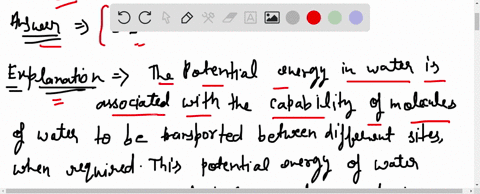 Answer ⇒
Explanation ⇒ The Potential energy in water is
associated with the capability of molecules
of water to be transported between different sites,
when required. This potential energy of water